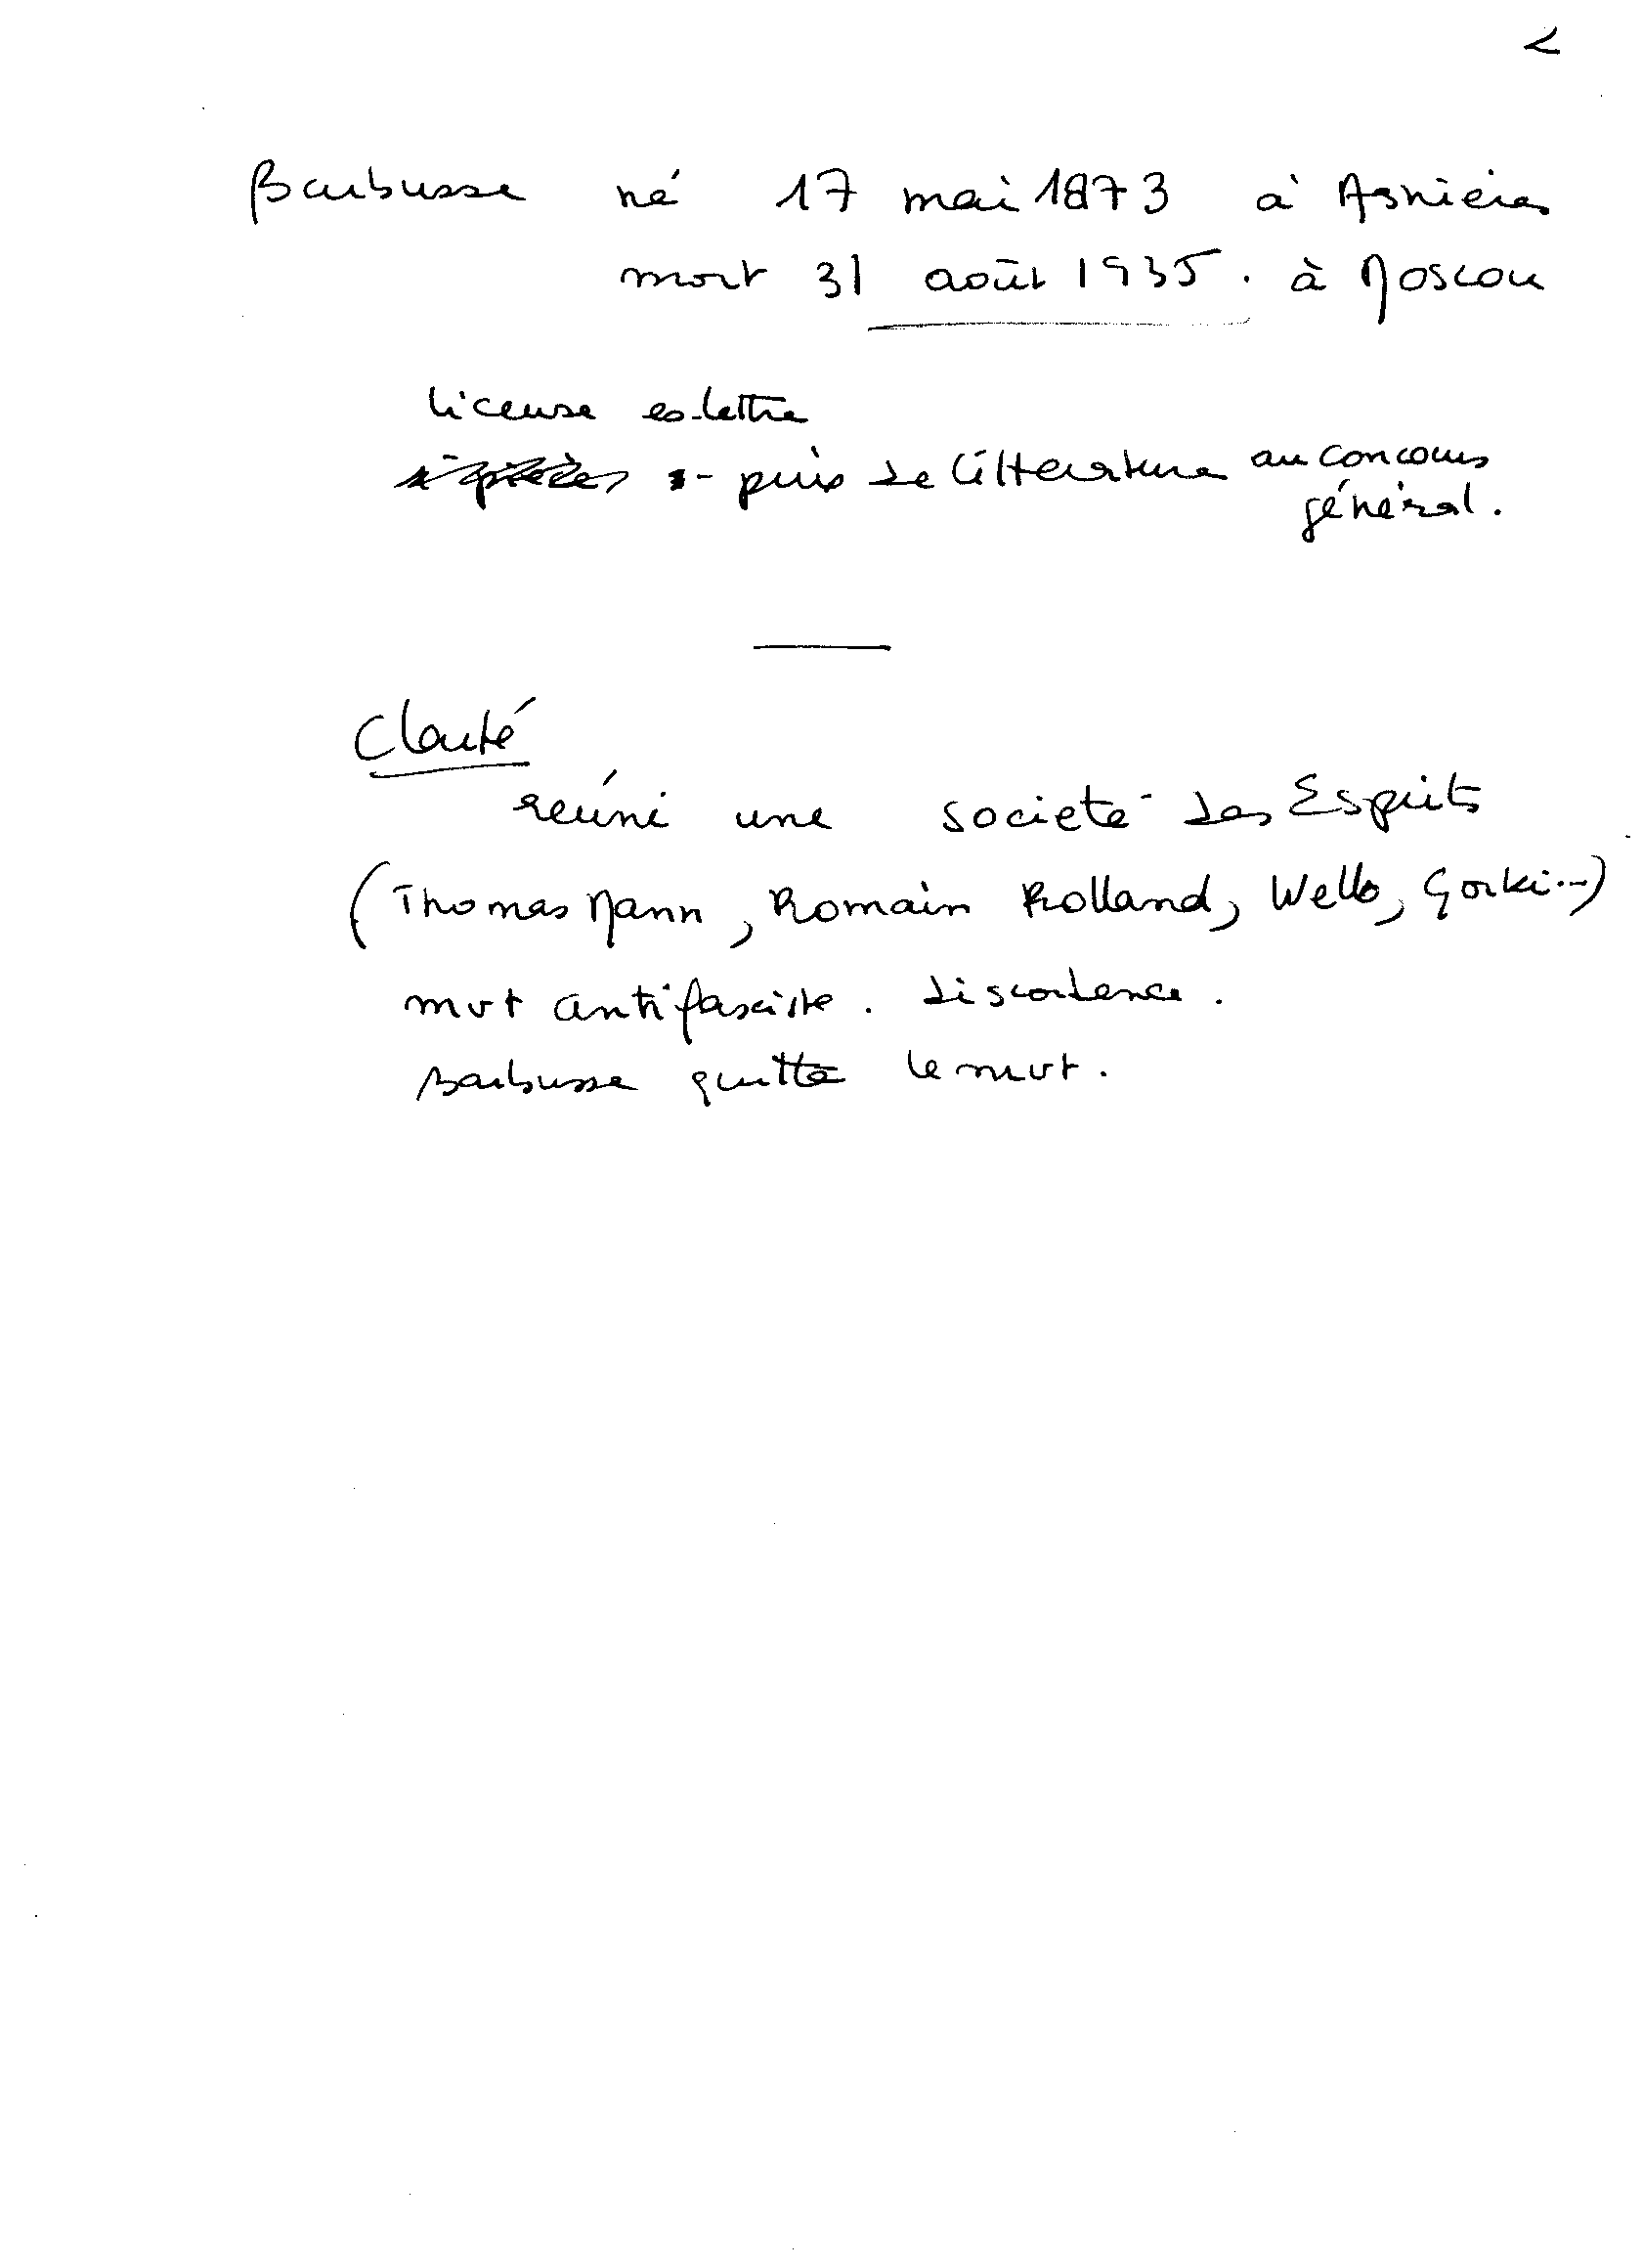 2
Barbusse né 17 mai 1873 à Asnières
mort 31 août 1935. à Moscou
license es-lettre
- puis de littérature au concours
général.
Clarté
réuni une societé des Esprits
(Thomas Mann, Romain Rolland, Wells, Gorki...)
mvt antifasciste. discordence.
Barbusse quitte le mvt.